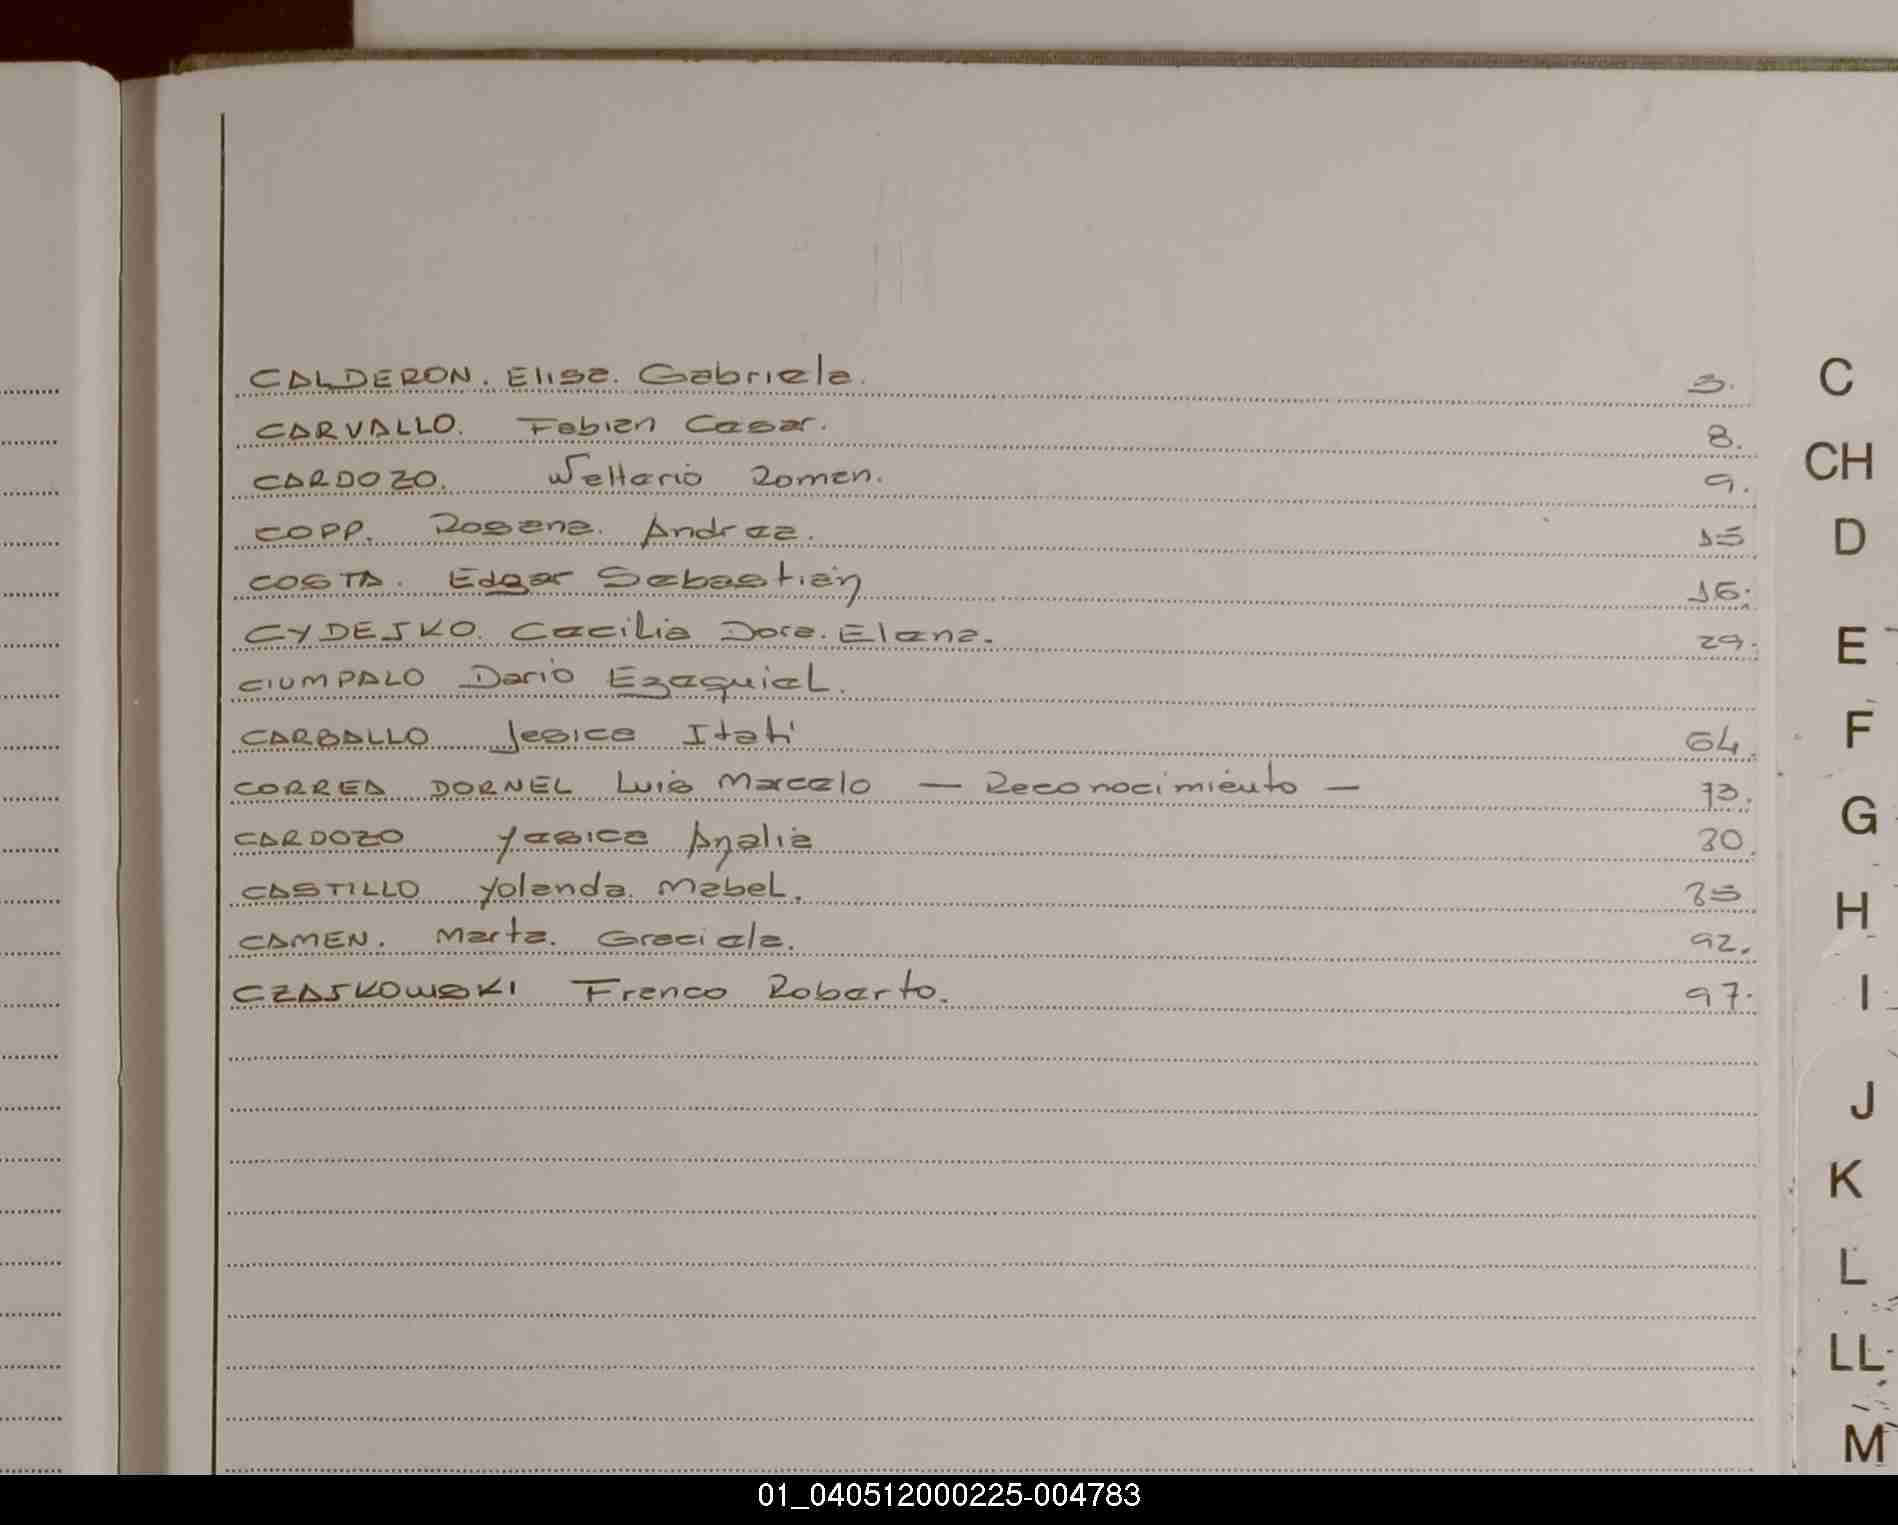 CALDERON. Elisa. Gabriela. 3.
CARVALLO. Fabian Cesar. 8.
CARDOZO. Welterio Roman. 9.
COPP. Rosana. Andrea. 15
COSTA. Edgar Sebastián 16.
CYDEJKO. Cecilia Dora. Elena. 29.
CIUMPALO Dario Ezequiel.
CARBALLO Jesica Itati 64.
CORREA DORNEL Luis Marcelo — Reconocimiento — 73.
CARDOZO Yesica Analia 80.
CASTILLO Yolanda Mabel. 85
CAMEN. Marta. Graciela. 92.
CZAJKOWSKI Franco Roberto. 97.
C
CH
D
E
F
G
H
I
J
K
L
LL
M
01_040512000225-004783